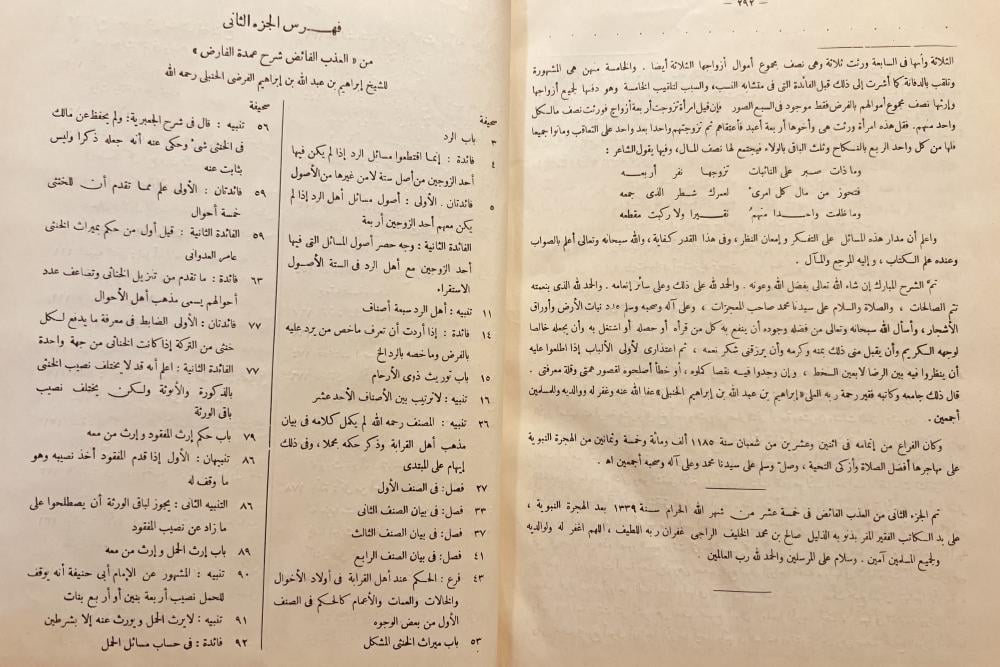 — ٢٩٢ —
الثلاثة وأنها فى السابعة ورثت ثلاثة وهى نصف مجموع أموال أزواجها الثلاثة أيضا . والخامسة منهن هى المشهورة
وتلقب بالدفانة كما أشرت إلى ذلك قبل الفائدة التى فى متشابه النسب، والسبب لتلقيب الخامسة وهو دفنها لجميع أزواجها
وإرثها نصف مجموع أموالهم بالفرض فقط موجود فى السبع الصور فإن قيل امرأة تزوجت أربعة أزواج فورثت نصف مال كل
واحد منهم. فقل هذه امرأة ورثت هى وأخوها أربعة أعبد فأعتقاهم ثم تزوجتهم واحدا بعد واحد على التعاقب وماتوا جميعا
فلها من كل واحد الربع بالنكاح وثلث الباقى بالولاء فيجتمع لها نصف المال، وفيها يقول الشاعر :
وما ذات صبر على النائبات تزوجها نفر أربعه
فتحوز من مال كل امرئ لعمرك شطر الذى جمعه
وما ظلمت واحدا منهمُ نقيرا ولا ركبت مقطعه
واعلم أن مدار هذه المسائل على التفكر وإمعان النظر، وفى هذا القدر كفاية، والله سبحانه وتعالى أعلم بالصواب
وعنده علم الكتاب ، وإليه المرجع والمآل.
تمّ الشرح المبارك إن شاء الله تعالى بفضل الله وعونه . والحمد لله على ذلك وعلى سائر إنعامه. والحمد لله الذى بنعمته
تتم الصالحات ، والصلاة والسلام على سيدنا محمد صاحب المعجزات ، وعلى آله وصحبه وسلم عدد نبات الأرض وأوراق
الأشجار، وأسأل الله سبحانه وتعالى من فضله وجوده أن ينفع به كل من قرأه أو حصله أو اشتغل به وأن يجعله خالصا
لوجهه الكريم وأن يقبل منى ذلك بمنه وكرمه وأن يرزقنى شكر نعمه ، ثم اعتذارى لأولى الألباب إذا اطلعوا عليه
أن ينظروا فيه بعين الرضا لا بعين السخط ، وإن وجدوا فيه نقصا كملوه ، أو خطأ أصلحوه لقصور همتى وقلة معرفتى .
قال ذلك جامعه وكاتبه فقير رحمة ربه العلى «إبراهيم بن عبد الله بن إبراهيم الحنبلى» عفا الله عنه وغفر له ولوالديه وللمسلمين
أجمعين .
وكان الفراغ من إتمامه فى اثنين وعشرين من شعبان سنة ١١٨٥ ألف ومائة وخمسة وثمانين من الهجرة النبوية
على مهاجرها أفضل الصلاة وأزكى التحية ، وصلّ وسلم على سيدنا محمد وعلى آله وصحبه أجمعين اهـ .
تم الجزء الثانى من العذب الفائض فى خمسة عشر من شهر الله الحرام سنة ١٣٣٩ بعد الهجرة النبوية ،
على يد الكاتب الفقير المقر بذنوبه الذليل صالح بن محمد الخليف الراجى غفران ربه اللطيف ، اللهم اغفر له ولوالديه
ولجميع المسلمين آمين . وسلام على المرسلين والحمد لله رب العالمين
فهرس الجزء الثانى
من «العذب الفائض شرح عمدة الفارض»
للشيخ إبراهيم بن عبد الله بن إبراهيم الفرضى الحنبلى رحمه الله
صحيفة
٣ باب الرد
٤ فائدة : إنما اقتطعوا مسائل الرد إذا لم يكن فيها
أحد الزوجين من أصل ستة لا من غيرها من الأصول
٥ فائدتان . الأولى : أصول مسائل أهل الرد إذا لم
يكن معهم أحد الزوجين أربعة
الفائدة الثانية : وجه حصر أصول المسائل التى فيها
أحد الزوجين مع أهل الرد فى الستة الأصول
الاستقراء
١١ تنبيه : أهل الرد سبعة أصناف
١٤ فائدة : إذا أردت أن تعرف ماخص من يرد عليه
بالفرض وماخصه بالرد الخ
١٥ باب توريث ذوى الأرحام
١٦ تنبيه : لا ترتيب بين الأصناف الأحد عشر
٢٦ تنبيه : المصنف رحمه الله لم يكمل كلامه فى بيان
مذهب أهل القرابة وذكر حكمه مجملا ، وفى ذلك
إيهام على المبتدى
٢٧ فصل: فى الصنف الأول
٣٣ فصل: فى بيان الصنف الثانى
٣٧ فصل: فى بيان الصنف الثالث
٤١ فصل: فى بيان الصنف الرابع
٤٣ فرع : الحكم عند أهل القرابة فى أولاد الأخوال
والخالات والعمات والأعمام كالحكم فى الصنف
الأول من بعض الوجوه
٥٣ باب ميراث الخنثى المشكل
صحيفة
٥٦ تنبيه : قال فى شرح الجعبرية: ولم يحفظ عن مالك
فى الخنثى شئ وحكى عنه أنه جعله ذكرا وليس
بثابت عنه
٥٩ فائدتان : الأولى علم مما تقدم أن للخنثى
خمسة أحوال
٥٩ الفائدة الثانية : قيل أول من حكم بميراث الخنثى
عامر العدوانى
٦٣ فائدة : ما تقدم من تنزيل الخناثى وتضاعف عدد
أحوالهم يسمى مذهب أهل الأحوال
٧٧ فائدتان : الأولى الضابط فى معرفة ما يدفع لكل
خنثى من التركة إذا كانت الخناثى من جهة واحدة
٧٧ الفائدة الثانية : اعلم أنه قد لا يختلف نصيب الخنثى
بالذكورة والأنوثة ولكن يختلف نصيب
باقى الورثة
٧٩ باب حكم إرث المفقود وإرث من معه
٨٦ تنبيهان : الأول إذا قدم المفقود أخذ نصيبه وهو
ما وقف له
٨٦ التنبيه الثانى : يجوز لباقى الورثة أن يصطلحوا على
ما زاد عن نصيب المفقود
٨٩ باب إرث الحمل وإرث من معه
٩٠ تنبيه : المشهور عن الإمام أبى حنيفة أنه يوقف
للحمل نصيب أربعة بنين أو أربع بنات
٩١ تنبيه : لا يرث الحمل ويورث عنه إلا بشرطين
٩٢ فائدة : فى حساب مسائل الحمل